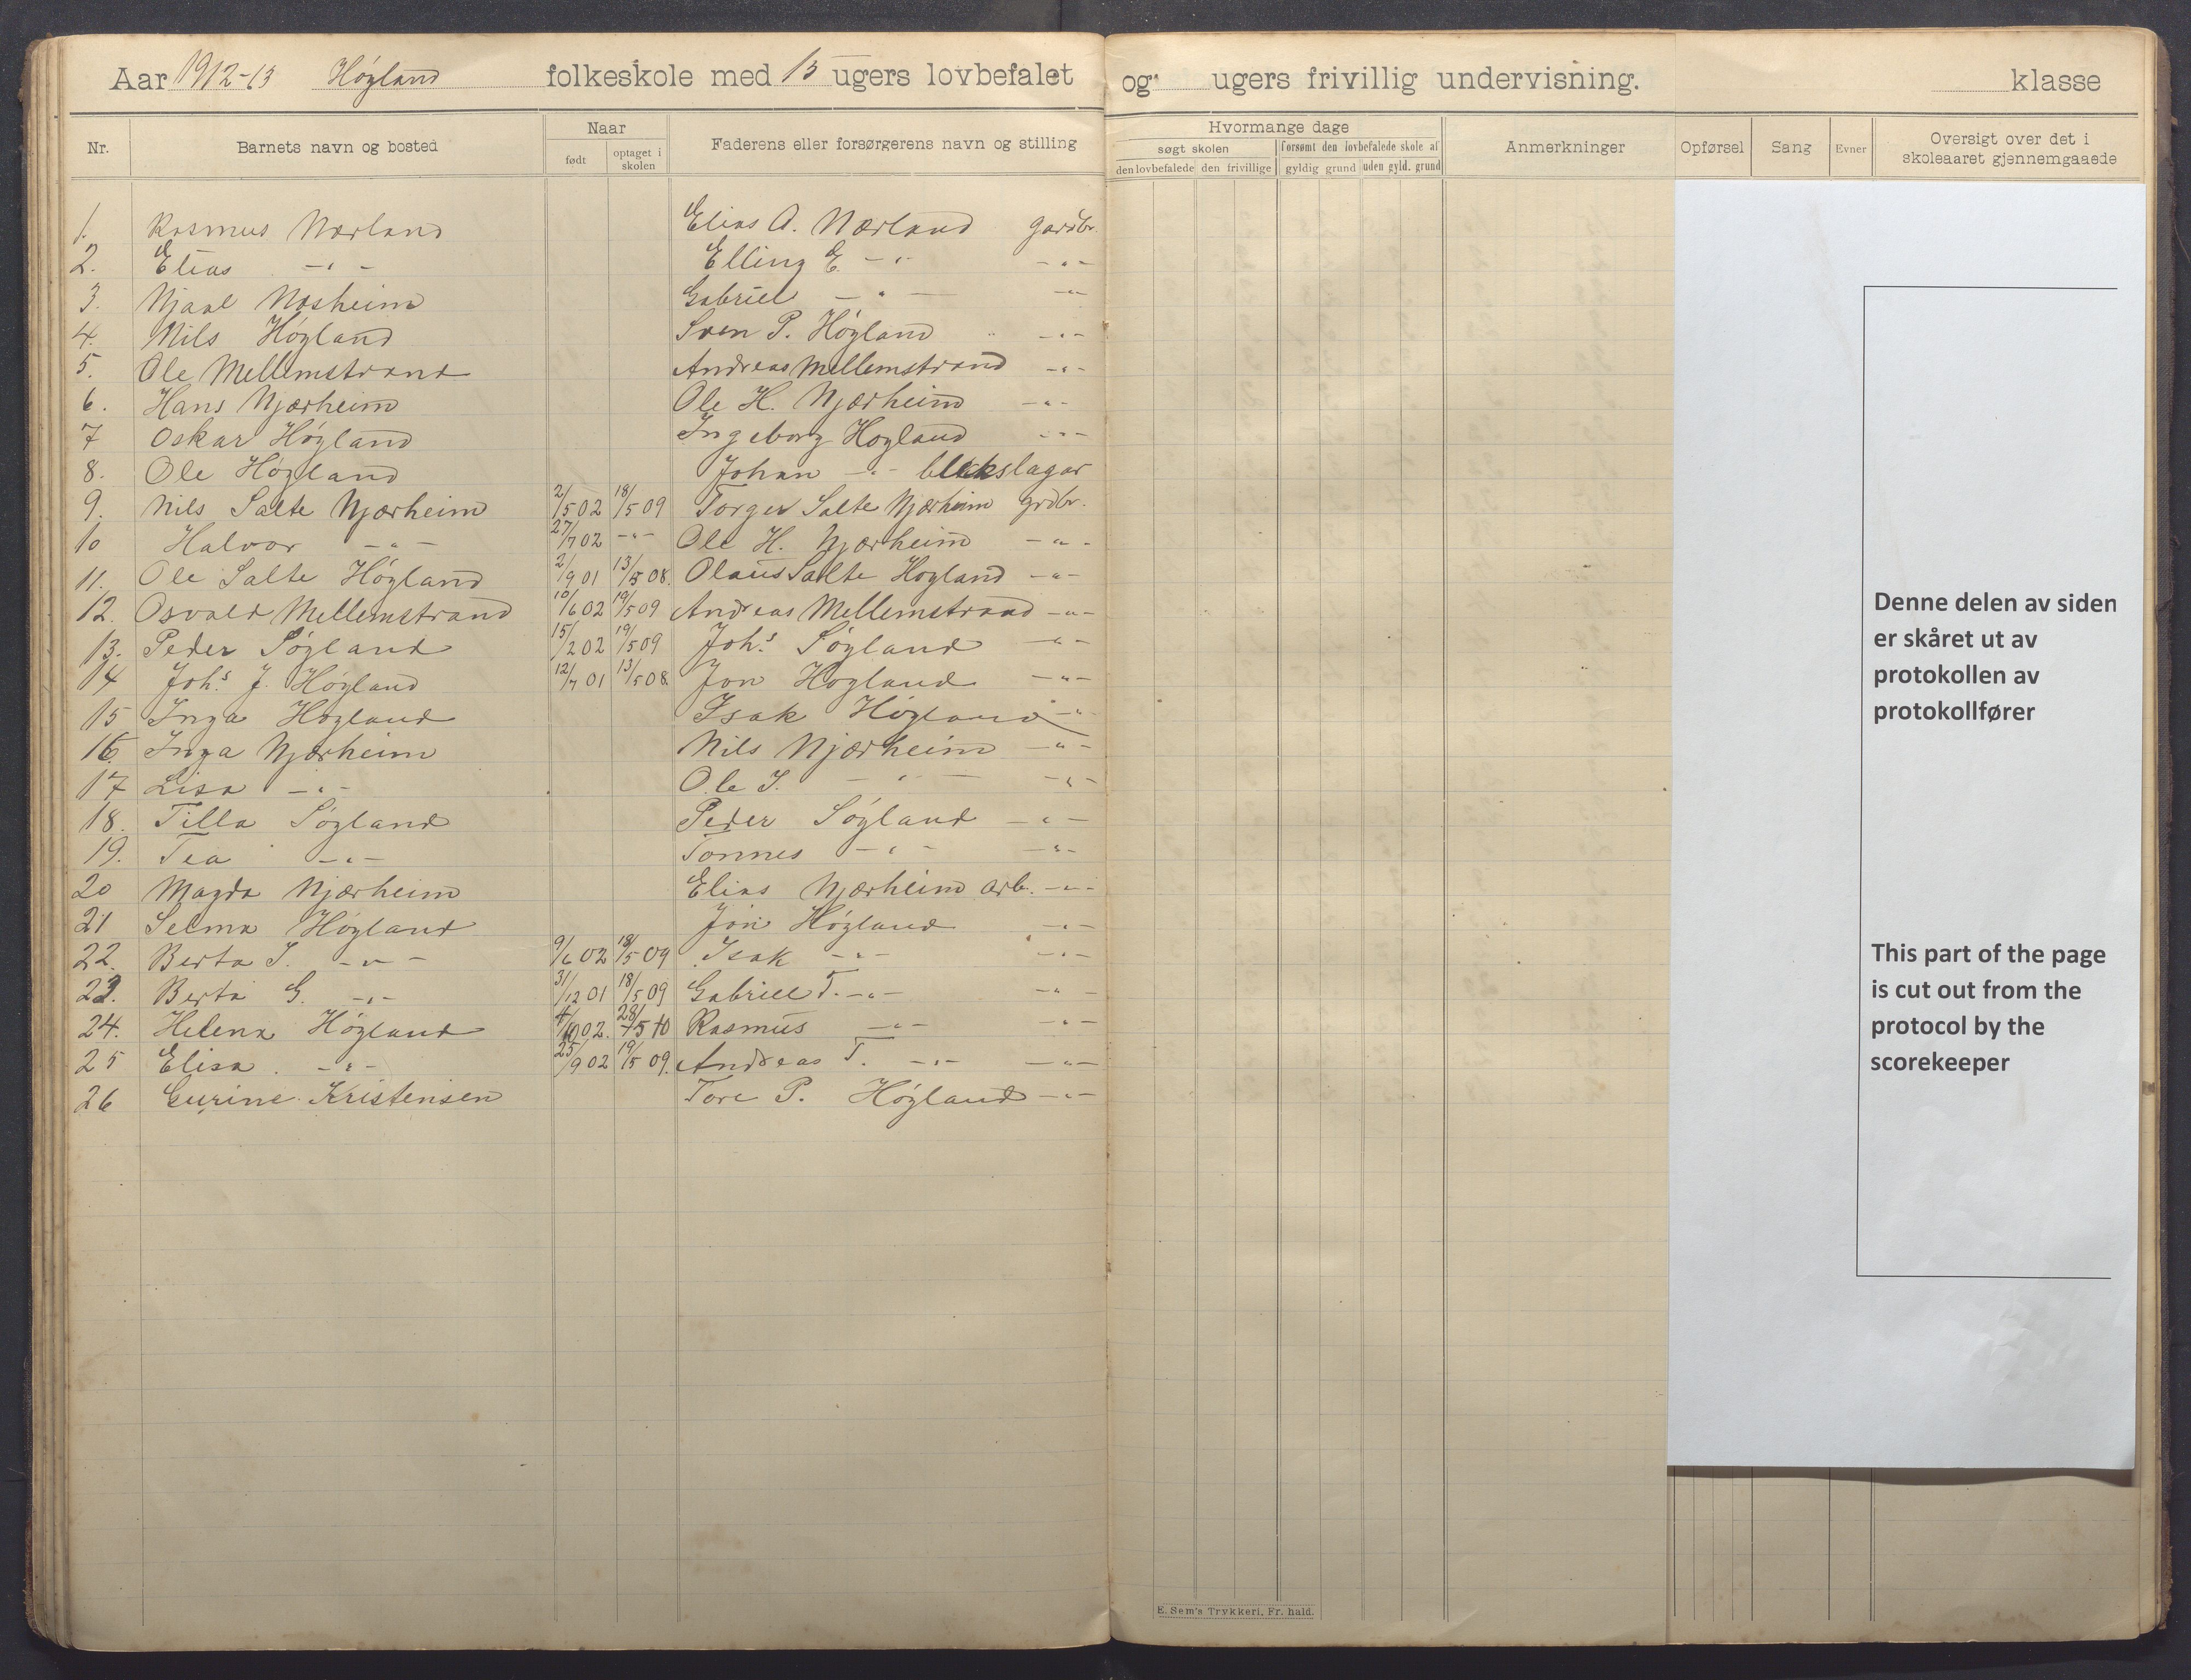 Aar 1912-13 Høgland folkeskole med 13 ugers lovbefalet og ugers frivillig undervisning. klasse
Nr. Barnets navn og bosted Naar Faderens eller forsørgerens navn og stilling Hvormange dage Anmerkninger Opførsel Sang Evner Oversigt over det i skoleaaret gjennemgaaede
født optaget i skolen søgt skolen forsømt den lovbefalede skole af
den lovbefalede den frivillige gyldig grund uden gyld. grund
1. Rasmus Nærland Elias A. Nærland gardbr.
2. Elias -"- Elling E. -"- -"-
3. Njaal Næsheim Gabriel -"- -"-
4. Nils Høgland Sven P. Høgland -"-
5. Ole Mellemstrand Andreas Mellemstrand -"-
6. Hans Njærheim Ole H. Njærheim -"-
7 Oskar Høgland Ingeborg Høgland -"-
8. Ole Høgland Johan -"- blekslagar
9. Nils Salte Njærheim 2/5 02 18/5 09 Torger Salte Njærheim grdbr.
10 Halvor -"- 27/7 02 -"- Ole H. Njærheim -"-
11. Ole Salte Høgland 2/9 01 13/5 08. Olaus Salte Høgland -"-
12. Osvald Mellemstrand 10/6 02 19/5 09 Andreas Mellemstrand -"-
13. Peder Søgland 15/2 02 19/5 09 Johs. Søgland -"-
14 Johs. J. Høgland 12/7 01 13/5 08. Jon Høgland -"-
15 Inga Høgland Isak Høgland -"-
16. Inga Njærheim Nils Njærheim -"-
17 Lisa -"- Ole I. -"- -"-
18. Tilla Søgland Peder Søgland -"-
19. Tea -"- Tønnes -"- -"-
20 Magda Njærheim Elias Njærheim arb. -"-
21 Selma Høgland Jon Høgland -"-
22. Berta I. -"- 9/6 02 18/5 09 Isak -"- -"-
23. Berta G. -"- 31/12 01 18/5 09 Gabriel T. -"- -"-
24. Helena Høgland 4/10 02. 28/5 10 Rasmus -"- -"-
25 Elisa. -"- 25/9 02 19/5 09. Andreas T. -"- -"-
26 Gurine Kristensen Tore P. Høgland -"-
Denne delen av siden
er skåret ut av
protokollen av
protokollfører
This part of the page
is cut out from the
protocol by the
scorekeeper
E. Sem's Trykkeri, Fr. hald.